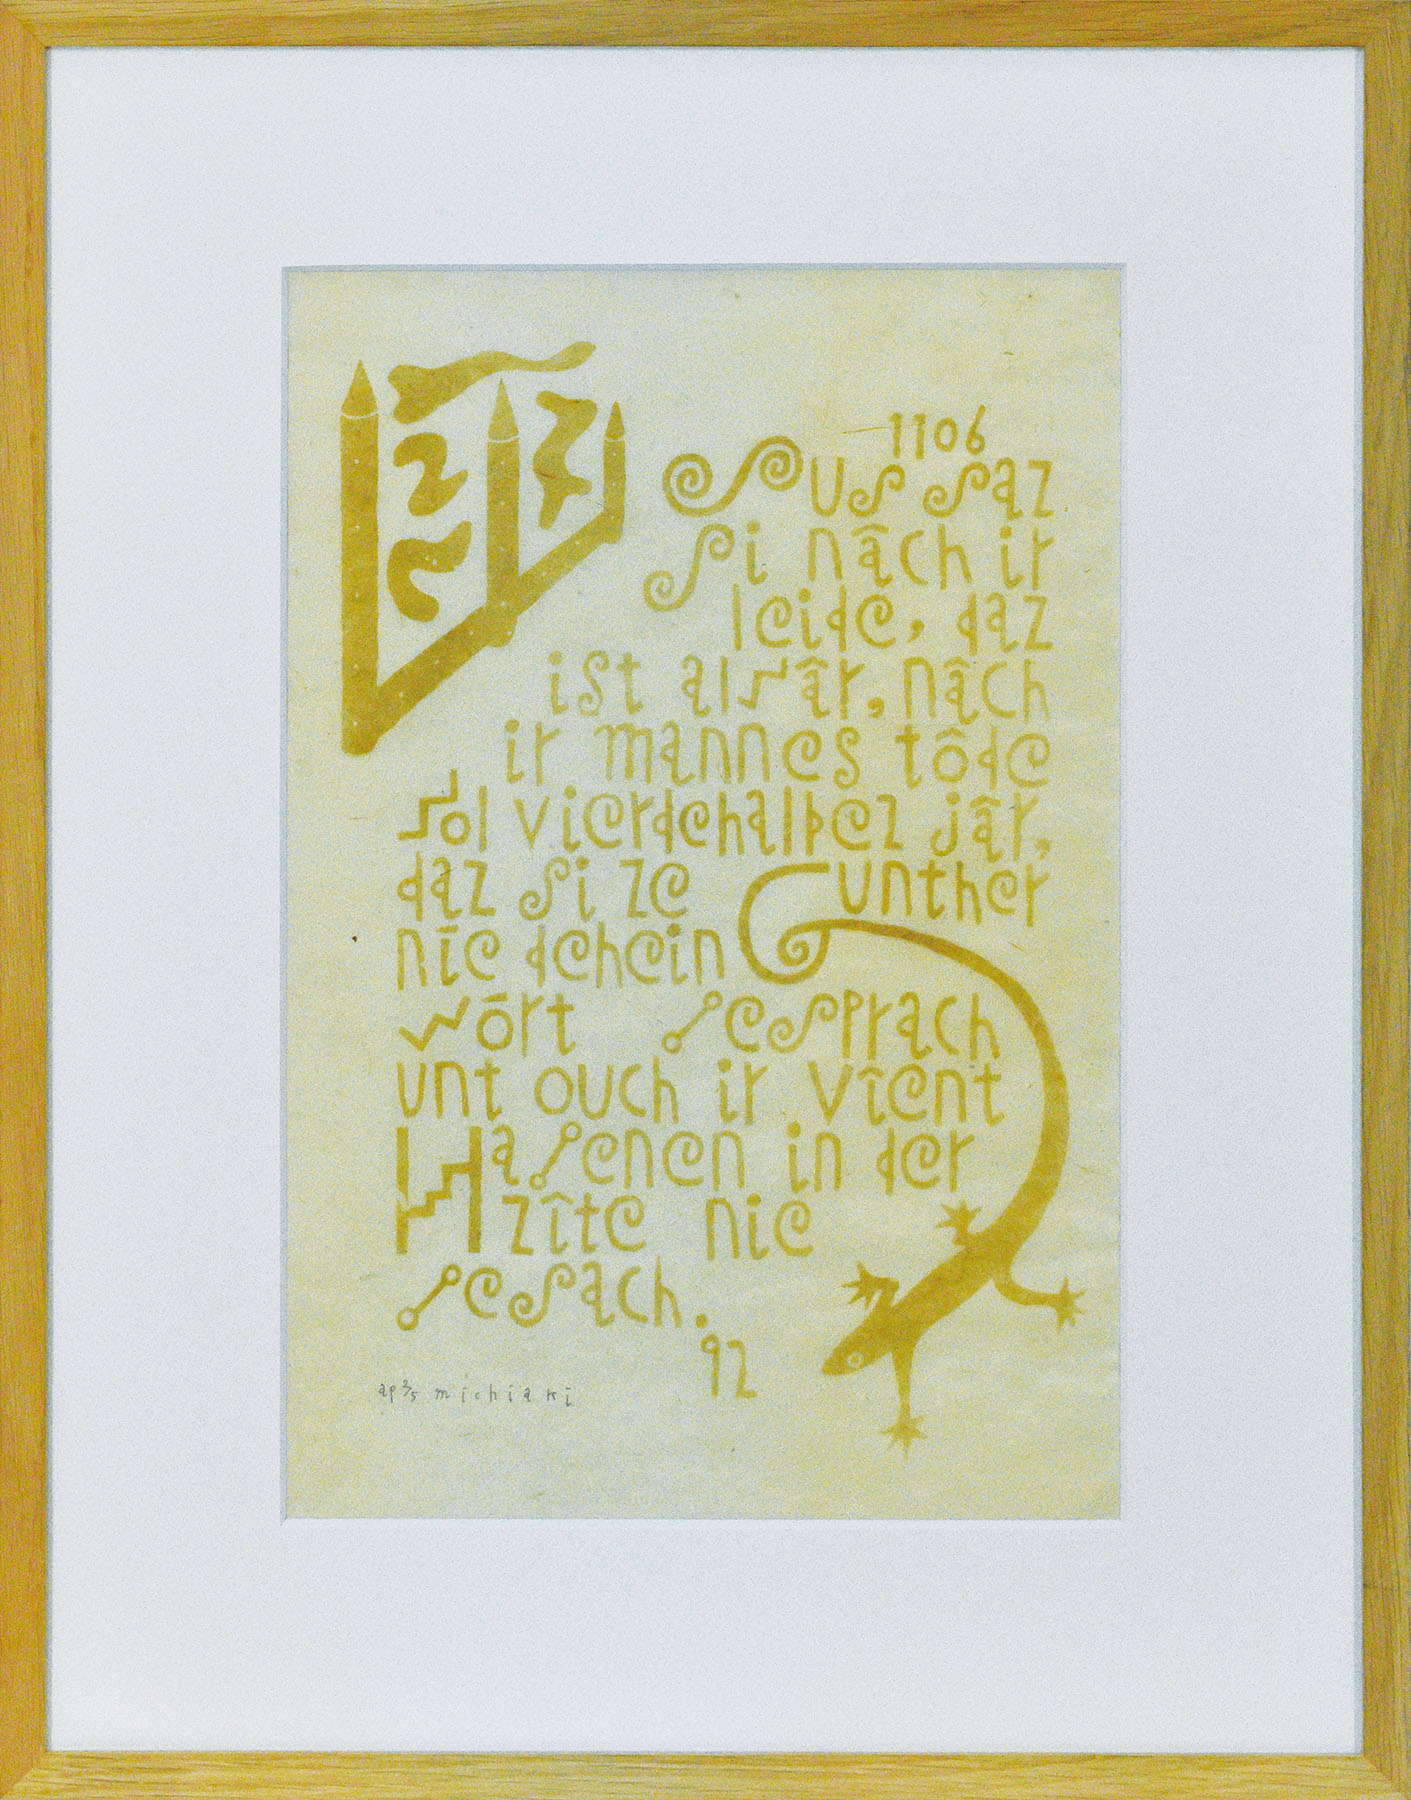 1106
Sus saz
si nâch ir
leide, daz
ist alwâr, nâch
ir mannes tôde
wol vierdehalbez jâr,
daz si ze Gunther
nīe dehein
wōrt gesprach
unt ouch ir vîent
Hagenen in der
zîte nie
gesach.
92
ap 2/5 michiaki